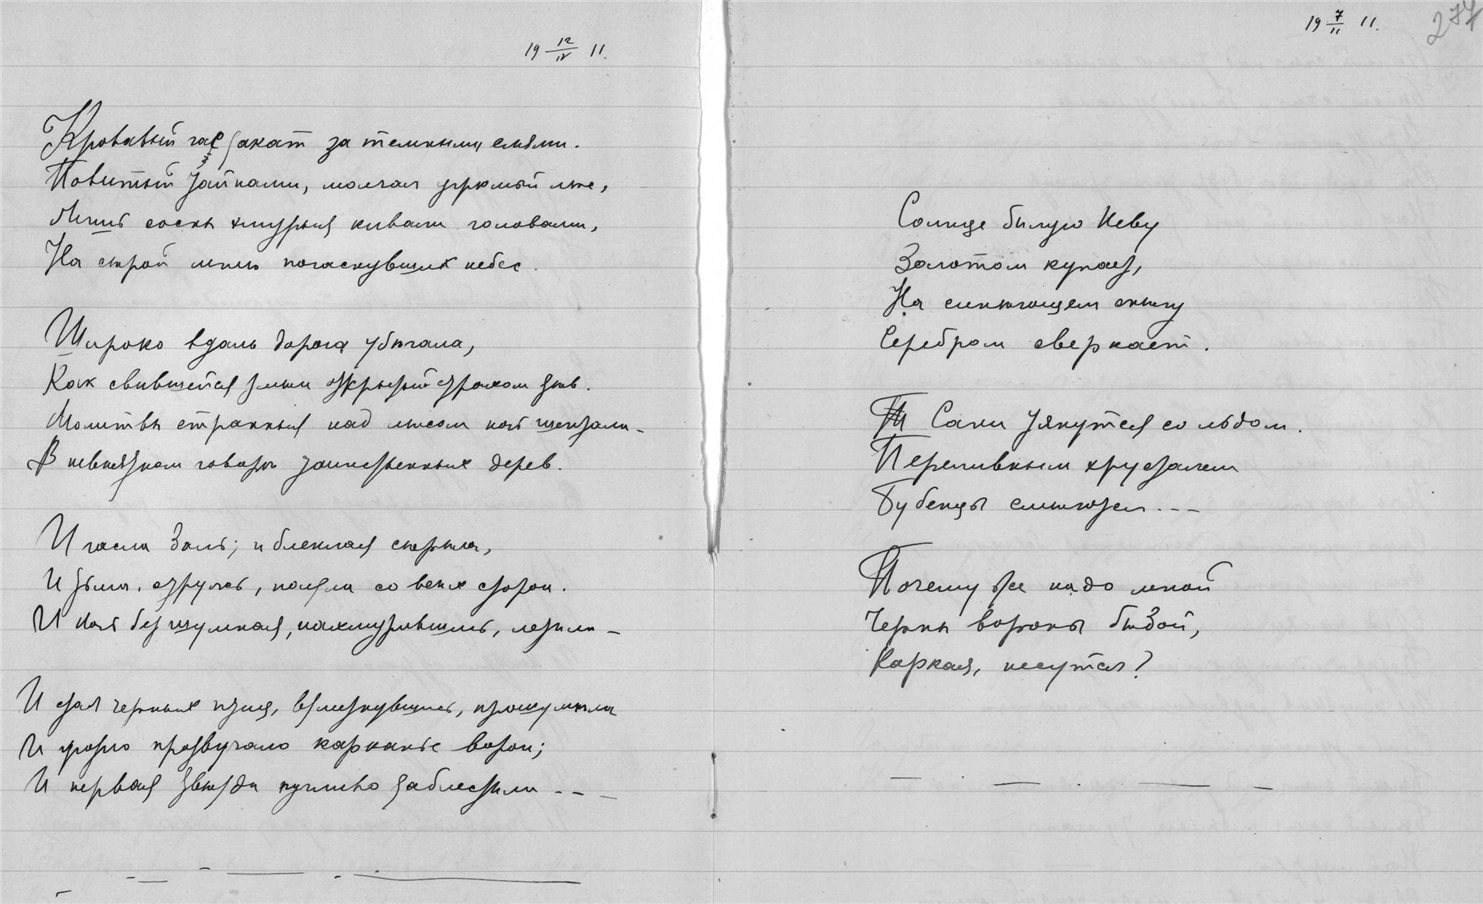 19 12/IV 11.
Кровавый гас закат за темными елями.
Повитый зайками, молчал угрюмый лѣс,
Лишь сосны хмурыя кивали головами,
На серой мглы погаснувших небес.
Широко вдаль дорога убѣгала,
Как свившейся змеи открытый зѣв.
Молитвы странныя над лѣсом ночь шептала
В невнятном говорѣ таинственных дерев.
И гасла даль; и блеклая
И тьма, сгрудясь, ползла со всѣх сторон.
И ночь безшумная, нахмурившись,
И стая черных птиц, взметнувшись, прошумѣла
И грозно прозвучало карканье ворон;
И первая звѣзда пугливо заблестѣла - - -
19 7/II 11.
277
Солнце бѣлую Неву
Золотом купает,
На синѣющем снѣгу
Серебром сверкает.
Сани тянутся со льдом.
Переливным хрусталем
Бубенцы смѣются - - -
Почему же надо мной
Черны вороны бѣдой,
Каркая, несутся?